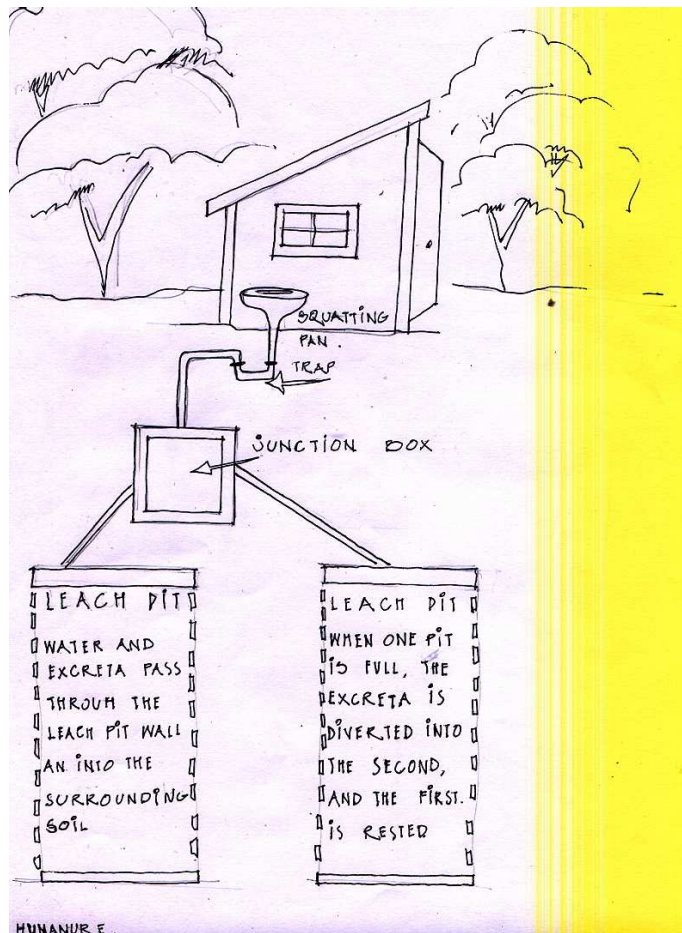 SQUATTING
PAN.
TRAP
JUNCTION BOX
LEACH PIT
WATER AND
EXCRETA PASS
THROUM THE
LEACH PIT WALL
AN INTO THE
SURROUNDING
SOIL
LEACH PIT
WHEN ONE PIT
IS FULL, THE
EXCRETA IS
DIVERTED INTO
THE SECOND,
AND THE FIRST.
IS RESTED
HUMANURE